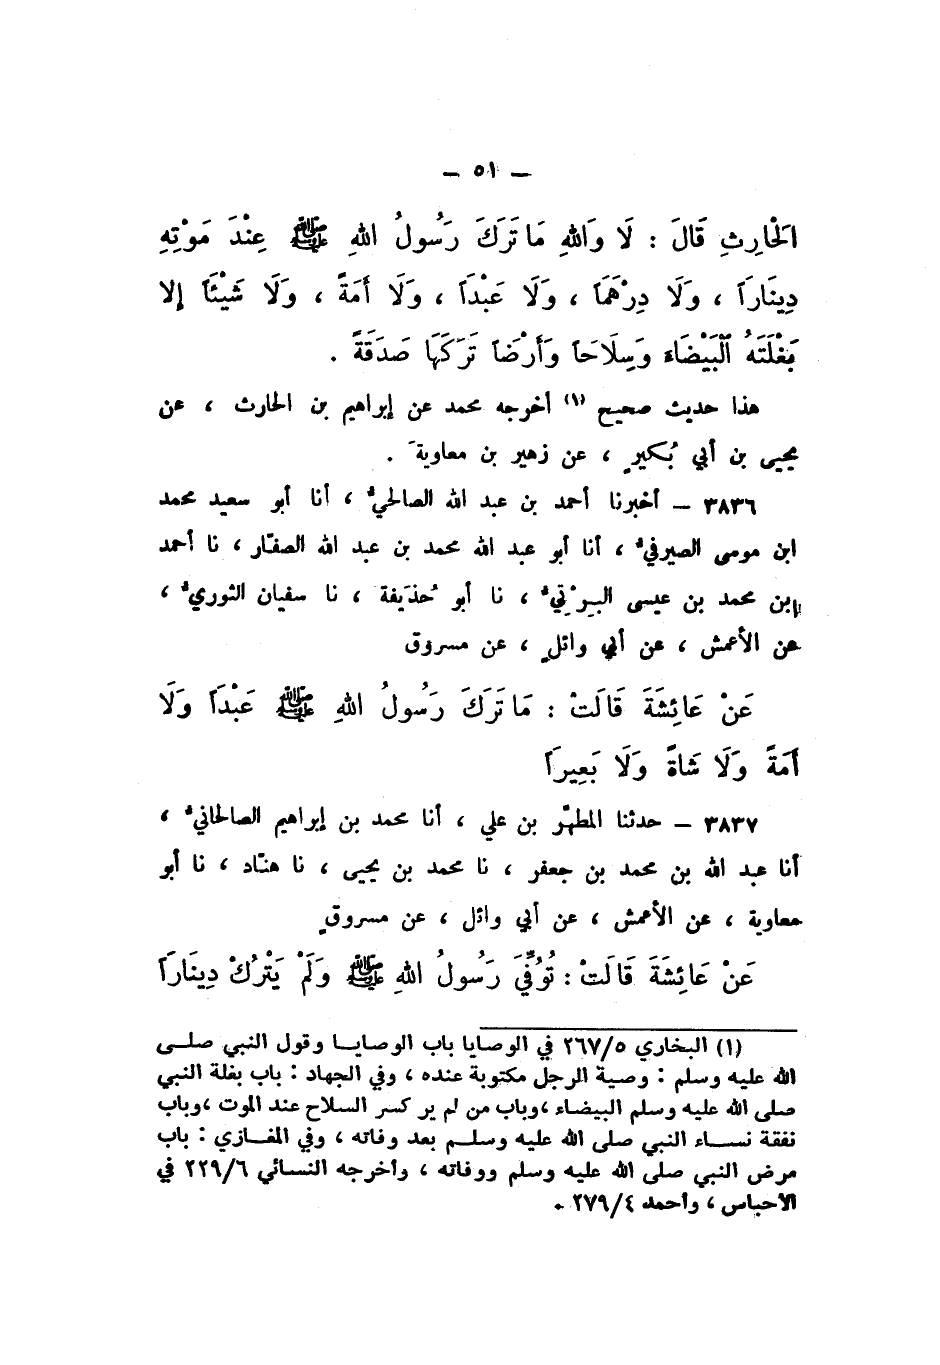 — ٥١ —
الحَارِثِ قَالَ : لَا وَاللهِ مَا تَرَكَ رَسُولُ اللهِ ﷺ عِنْدَ مَوْتِهِ
دِينَارَاً ، وَلَا دِرْهَمَاً ، وَلَا عَبْدَاً ، وَلَا أَمَةً ، وَلَا شَيْئَاً إلا
بَغْلَتَهُ الْبَيْضَاءَ وَسِلَاحَاً وَأَرْضَاً تَرَكَهَا صَدَقَةً .
هذا حديث صحيح (١) أخوجه محمد عن إبراهيم بن الحارث ، عن
يحيى بن أبي بُكيرٍ ، عن زهير بن معاويةَ .
٣٨٣٦ — أخبرنا أحمد بن عبد الله الصالحيُّ ، أنا أبو سعيد محمد
ابن موسى الصيرفيُّ ، أنا أبو عبد الله محمد بن عبد الله الصفّار ، نا أحمد
ابن محمد بن عيسى البِرْتيُّ ، نا أبو حُذَيفة ، نا سفيان الثوريُّ ،
عن الأعمش ، عن أبي وائلٍ ، عن مسروق
عَنْ عَائِشَةَ قَالَتْ : مَا تَرَكَ رَسُولُ اللهِ ﷺ عَبْدَاً وَلَا
أَمَةً وَلَا شَاةً وَلَا بَعِيرَاً
٣٨٣٧ — حدثنا المطهّر بن علي ، أنا محمد بن إبراهيم الصالحانيُّ ،
أنا عبد الله بن محمد بن جعفر ، نا محمد بن يحيى ، نا هنّاد ، نا أبو
معاوية ، عن الأعمش ، عن أبي وائل ، عن مسروقٍ
عَنْ عَائِشَةَ قَالَتْ : تُوُفِّيَ رَسُولُ اللهِ ﷺ وَلَمْ يَتْرُكْ دِينَارَاً
(١) البخاري ٢٦٧/٥ في الوصايا باب الوصايا وقول النبي صلى
الله عليه وسلم : وصية الرجل مكتوبة عنده ، وفي الجهاد : باب بغلة النبي
صلى الله عليه وسلم البيضاء ،وباب من لم ير كسر السلاح عند الموت ،وباب
نفقة نساء النبي صلى الله عليه وسلم بعد وفاته ، وفي المغازي : باب
مرض النبي صلى الله عليه وسلم ووفاته ، وأخرجه النسائي ٢٢٩/٦ في
الأحباس ، وأحمد ٢٧٩/٤ .